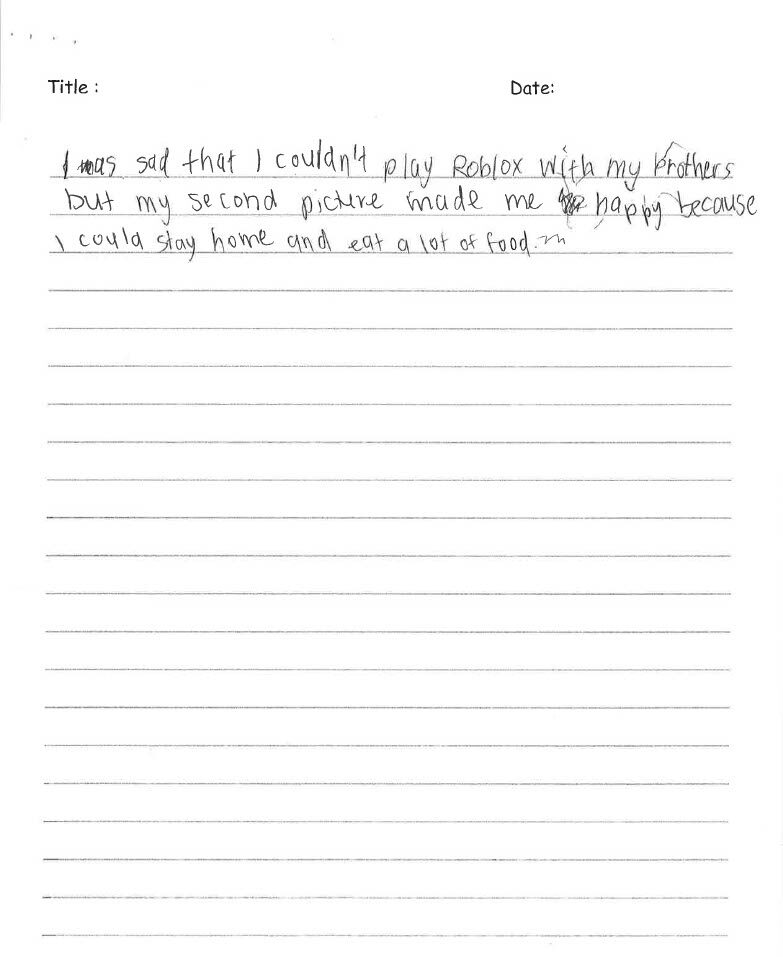 Title : Date:
I was sad that I couldn't play Roblox with my brothers
but my second picture made me happy because
I could stay home and eat a lot of food.